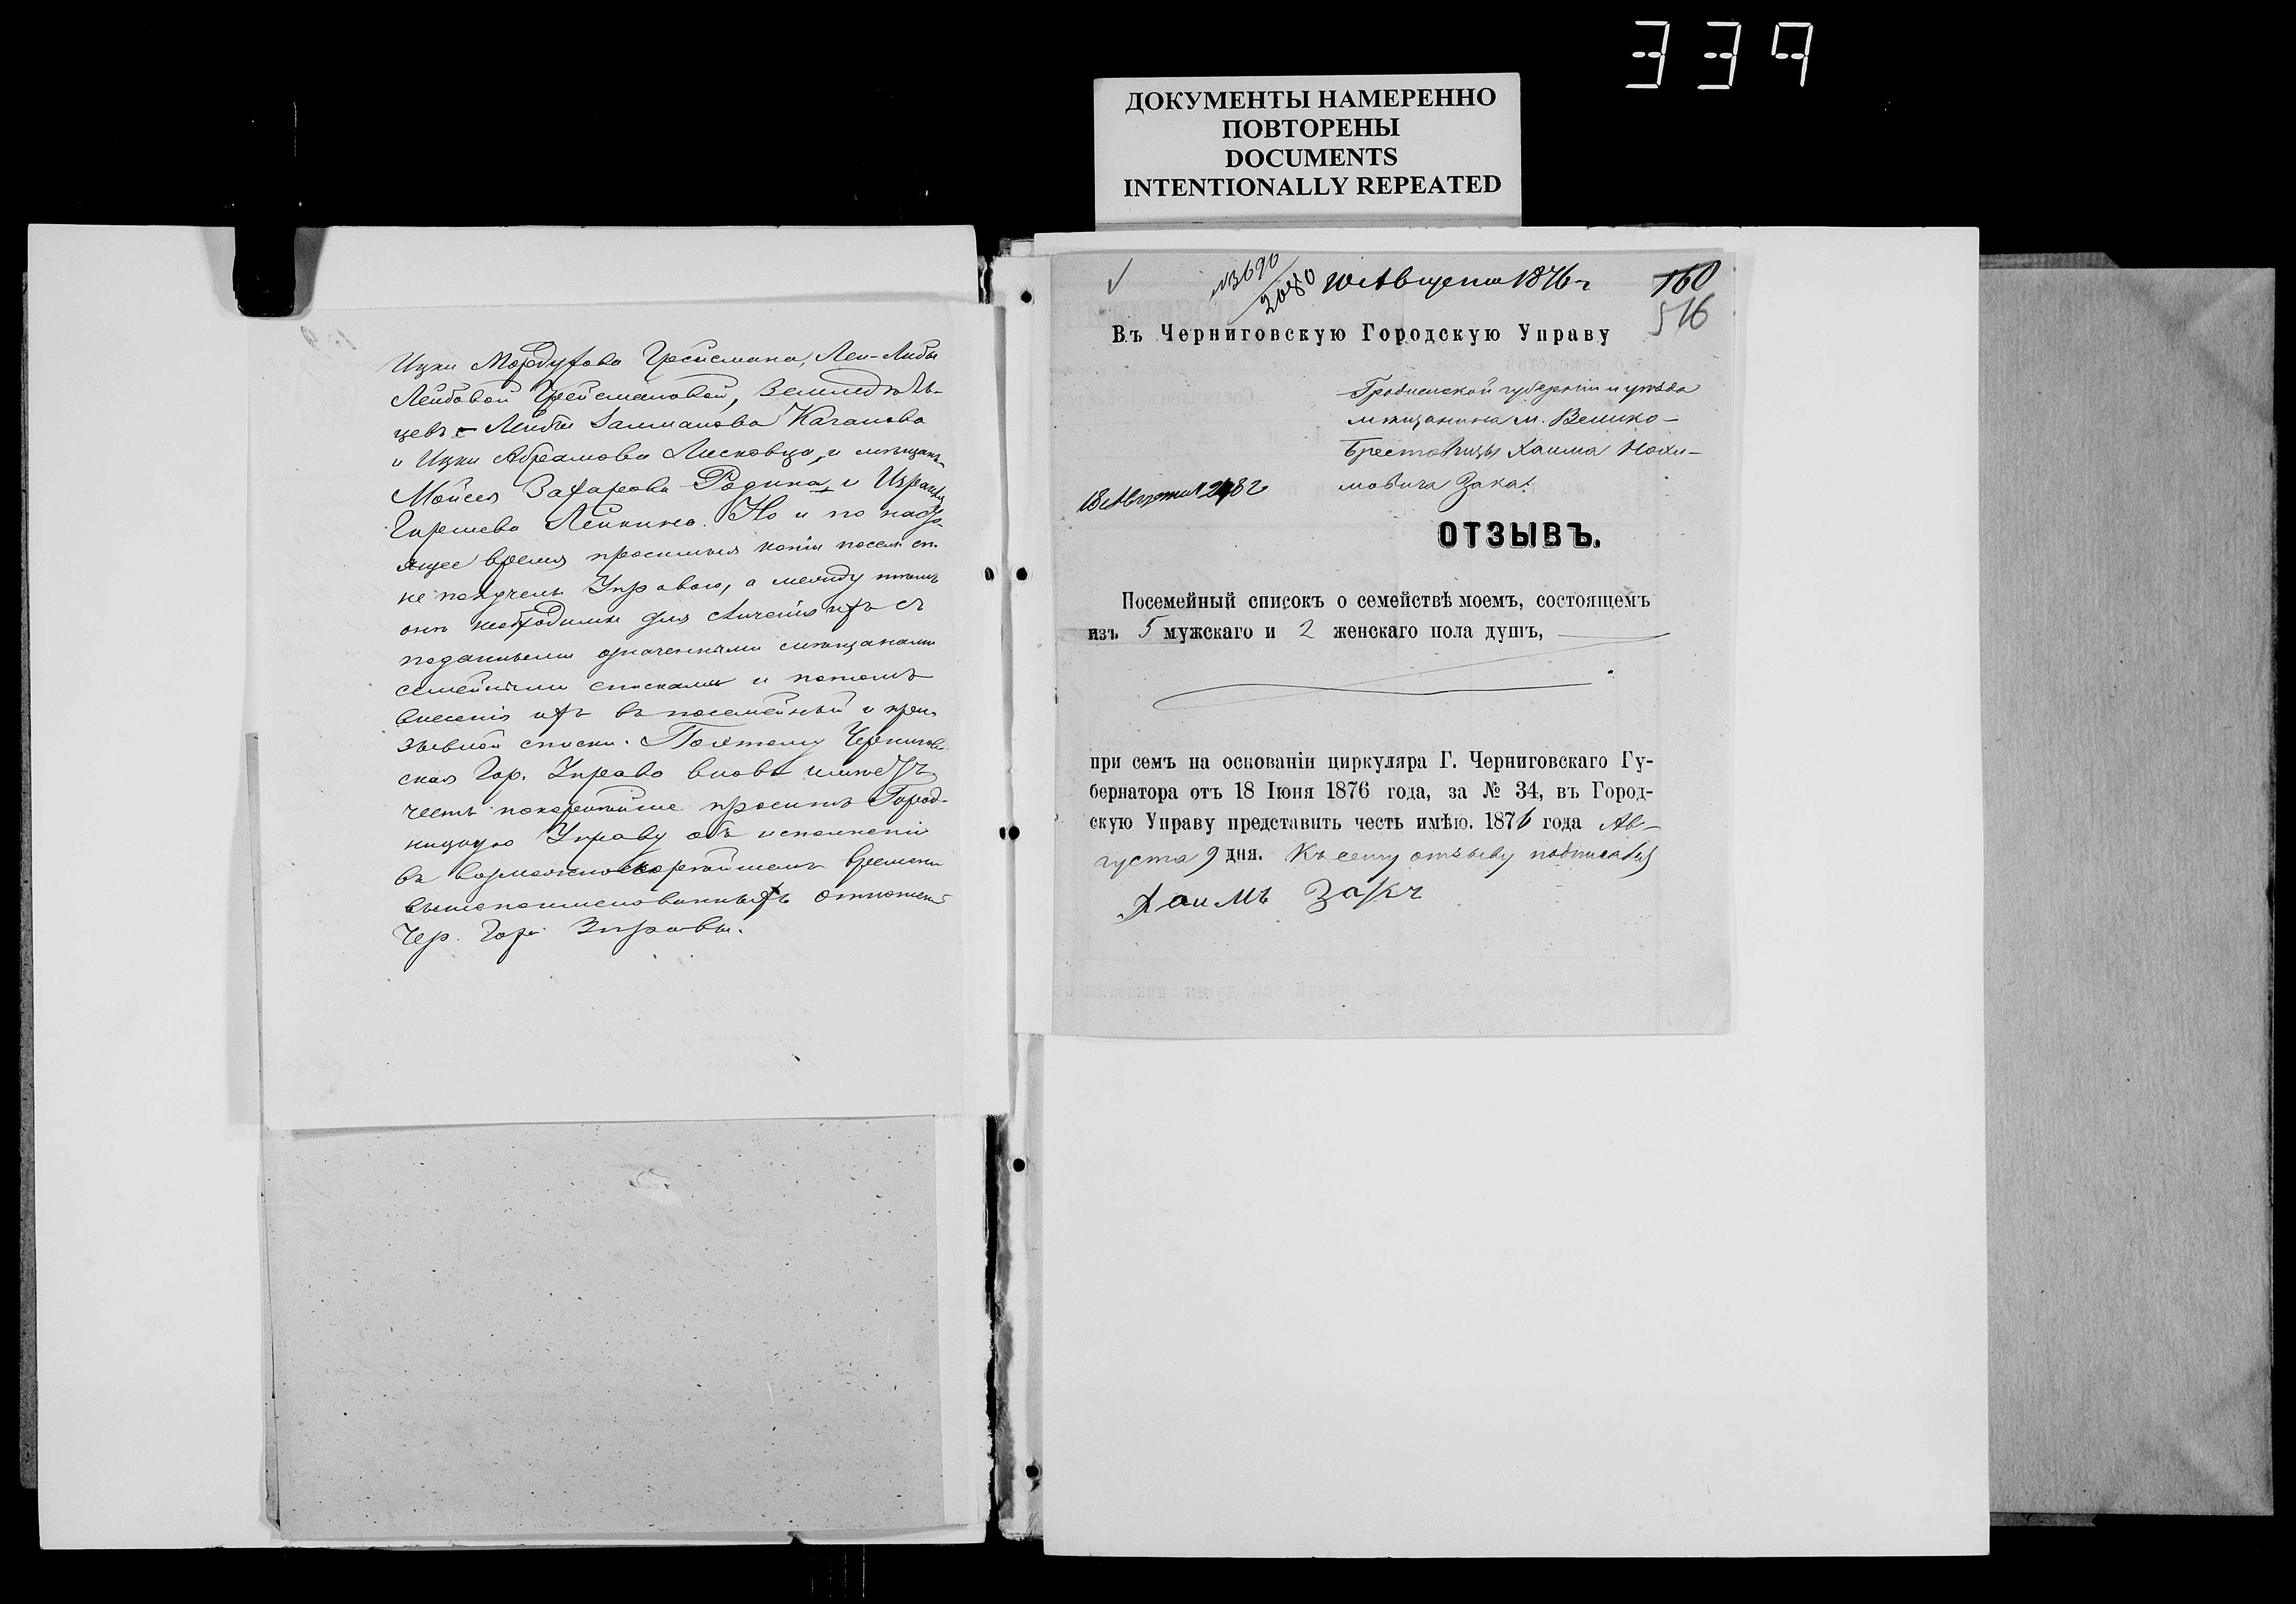 339
ДОКУМЕНТЫ НАМЕРЕННО
ПОВТОРЕНЫ
DOCUMENTS
INTENTIONALLY REPEATED
Ицки Мордухова Грейсмана, Леи-Либы
Лейбовой Грейсмановой, Земледѣль-
цевъ Лейбы Залманова Каганова
и Ицки Абрамова Лисковца, и мѣщанъ
Мойсея Захарова Родина и Израиля
Гиршева Лейкина. Но и по насто-
ящее время просимыя копіи посем. сп.
не получены Управою, а между тѣмъ
они необходимы для сличенія ихъ съ
поданными означенными мѣщанами
семейными списками и потомъ
внесенія ихъ въ посемейный и при-
зывной списки. Поэтому Чернигов-
ская Гор. Управа вновь имѣетъ
честь покорнѣйше просить Город-
ницкую Управу объ исполненіи
въ возможно скорѣйшемъ времени
вышепоименованныхъ отношеній
Чер. Гор. Управы.
№3690
2080
10 Августа 1876 г
160
516
Въ Черниговскую Городскую Управу
Гродненской губерніи и уѣзда
мѣщанина м. Велико-
Берестовицы Хаима Нохи-
мовича Зака.
18 Августа 2482
ОТЗЫВЪ.
Посемейный списокъ о семействѣ моемъ, состоящемъ
изъ 5 мужскаго и 2 женскаго пола душъ,
при семъ на основаніи циркуляра Г. Черниговскаго Гу-
бернатора отъ 18 Іюня 1876 года, за № 34, въ Город-
скую Управу представить честь имѣю. 1876 года Ав-
густа 9 дня. Къ сему отзыву подписался
Хаимъ Закъ